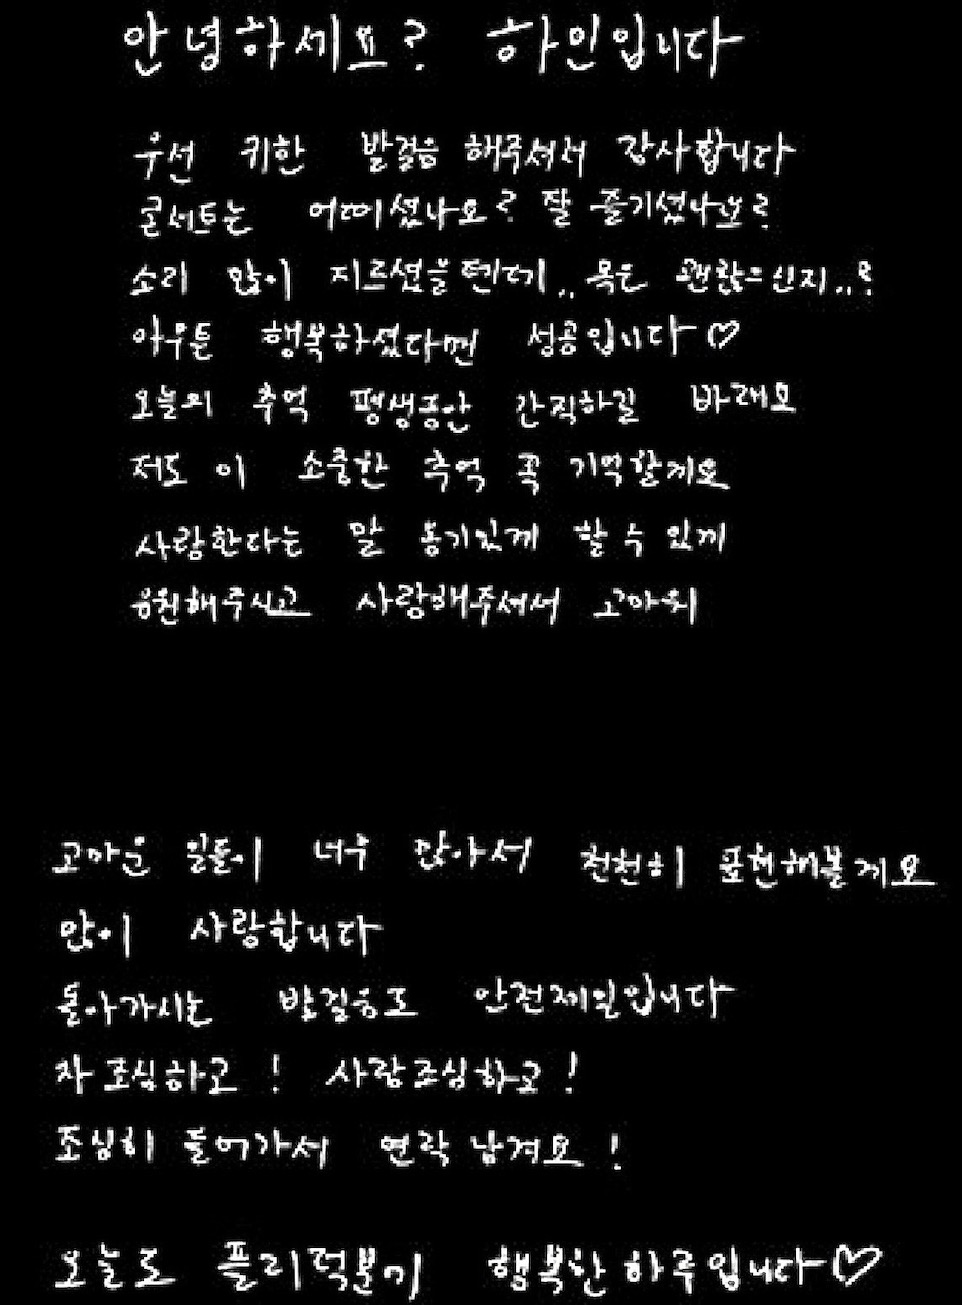 안녕하세요? 하인입니다
우선 귀한 발걸음 해주셔서 감사합니다
콘서트는 어떠셨나요? 잘 즐기셨나요?
소리 많이 지르셨을텐데.. 목은 괜찮으신지..?
아무튼 행복하셨다면 성공입니다♡
오늘의 추억 평생동안 간직하길 바래요
저도 이 소중한 추억 꼭 기억할게요
사랑한다는 말 용기있게 할 수 있게
응원해주시고 사랑해주셔서 고마워
고마운 일들이 너무 많아서 천천히 표현해볼게요
많이 사랑합니다
돌아가시는 발걸음도 안전제일입니다
차 조심하고! 사람조심하고!
조심히 들어가서 연락 남겨요!
오늘도 플리덕분에 행복한 하루입니다♡